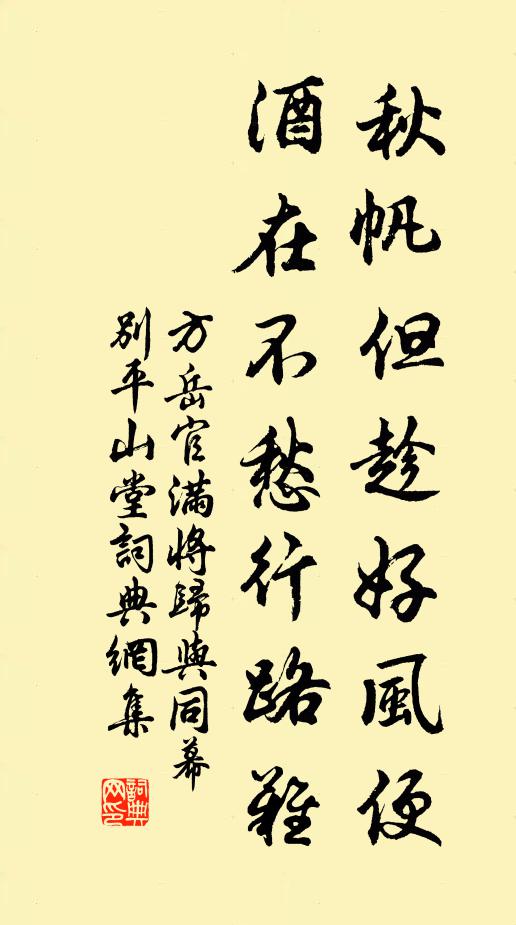 秋帆但趁好風便
酒在不愁行路難
方岳官滿將歸與同幕
別平山堂詞典網集
詞典網印